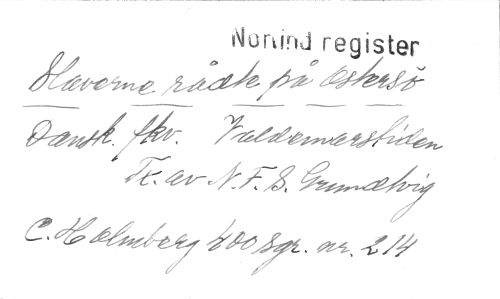 Norind register
Slaverne rådte på Østersø
Dansk. fkv. Valdemarstiden
Tk. av N. F. S. Grundtvig
C. Holmberg 400 sgr. nr. 214